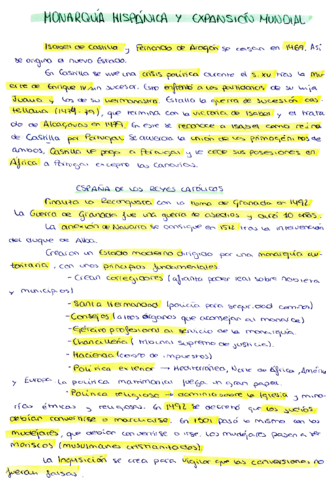 MONARQUÍA HISPÁNICA Y EXPANSIÓN MUNDIAL
Isabel de Castilla y Fernando de Aragón se casan en 1469. Así
se origina el nuevo Estado.
En Castilla se vive una crisis política durante el s. XV tras la mu
erte de Enrique IV sin sucesor. Esto enfrentó a los partidarios de su hija
Juana y los de su hermanastra. Estalla la guerra de sucesión cas-
tellana (1474-79), que termina con la victoria de Isabel y el trata
do de Alcaçovas en 1479. En este se reconoce a Isabel como reina
de Castilla por Portugal. Se acuerda la unión de los primogénitos de
ambos. Castilla se pega a Portugal y se cede sus posesiones en
África a Portugal excepto las Canarias.
ESPAÑA DE LOS REYES CATÓLICOS
Finaliza la Reconquista con la toma de Granada en 1492.
La Guerra de Granada fue una guerra de asedios y duró 10 años.
La anexión de Navarra se consigue en 1512 tras la intervención
del duque de Alba.
Crearon un Estado moderno dirigido por una monarquía au-
toritaria, con unos principios fundamentales.
- Crean corregidores (afianzó poder real sobre nobleza
y municipios)
- Santa Hermandad (policía para seguridad común)
- Consejos (altos órganos que aconsejan al monarca)
- Ejército profesional al servicio de la monarquía.
- Chancillería (tribunal supremo de justicia).
- Hacienda (cobro de impuestos)
- Política exterior → Mediterráneo, Norte de África, América
y Europa. La política matrimonial juega un gran papel.
- Política religiosa → dominio sobre la Iglesia y mino-
rías étnicas y religiosas. En 1492 se decretó que los judíos
debían convertirse o marcharse. En 1501 pasó lo mismo con los
mudéjares, que debían convertirse o irse. Los mudéjares pasan a ser
moriscos (musulmanes cristianizados)
La Inquisición se crea para vigilar que las conversiones no
fueran falsas.